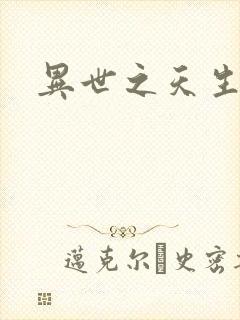 異世之天生
邁克尔 史密